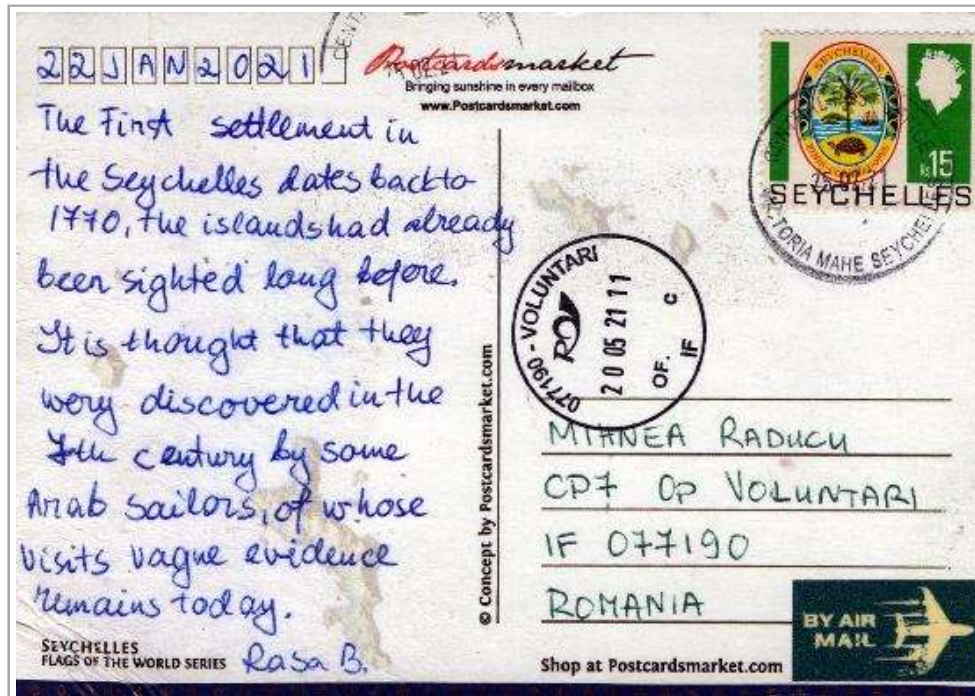 22JAN2021
Postcardsmarket
Bringing sunshine in every mailbox
www.Postcardsmarket.com
The First settlement in
the Seychelles dates back to
1770, the islands had already
been sighted long before.
It is thought that they
wery discovered in the
7th century by some
Arab sailors, of whose
visits vague evidence
remains today.
Rasa B.
SEYCHELLES
FLAGS OF THE WORLD SERIES
© Concept by Postcardsmarket.com
SEYCHELLES
Rs15
SEYCHELLES
VICTORIA MAHE SEYCHELLES
077190 - VOLUNTARI
20 05 21 11
OF.
IF
C
MIHNEA RADUCU
CP7 OP VOLUNTARI
IF 077190
ROMANIA
BY AIR
MAIL
Shop at Postcardsmarket.com